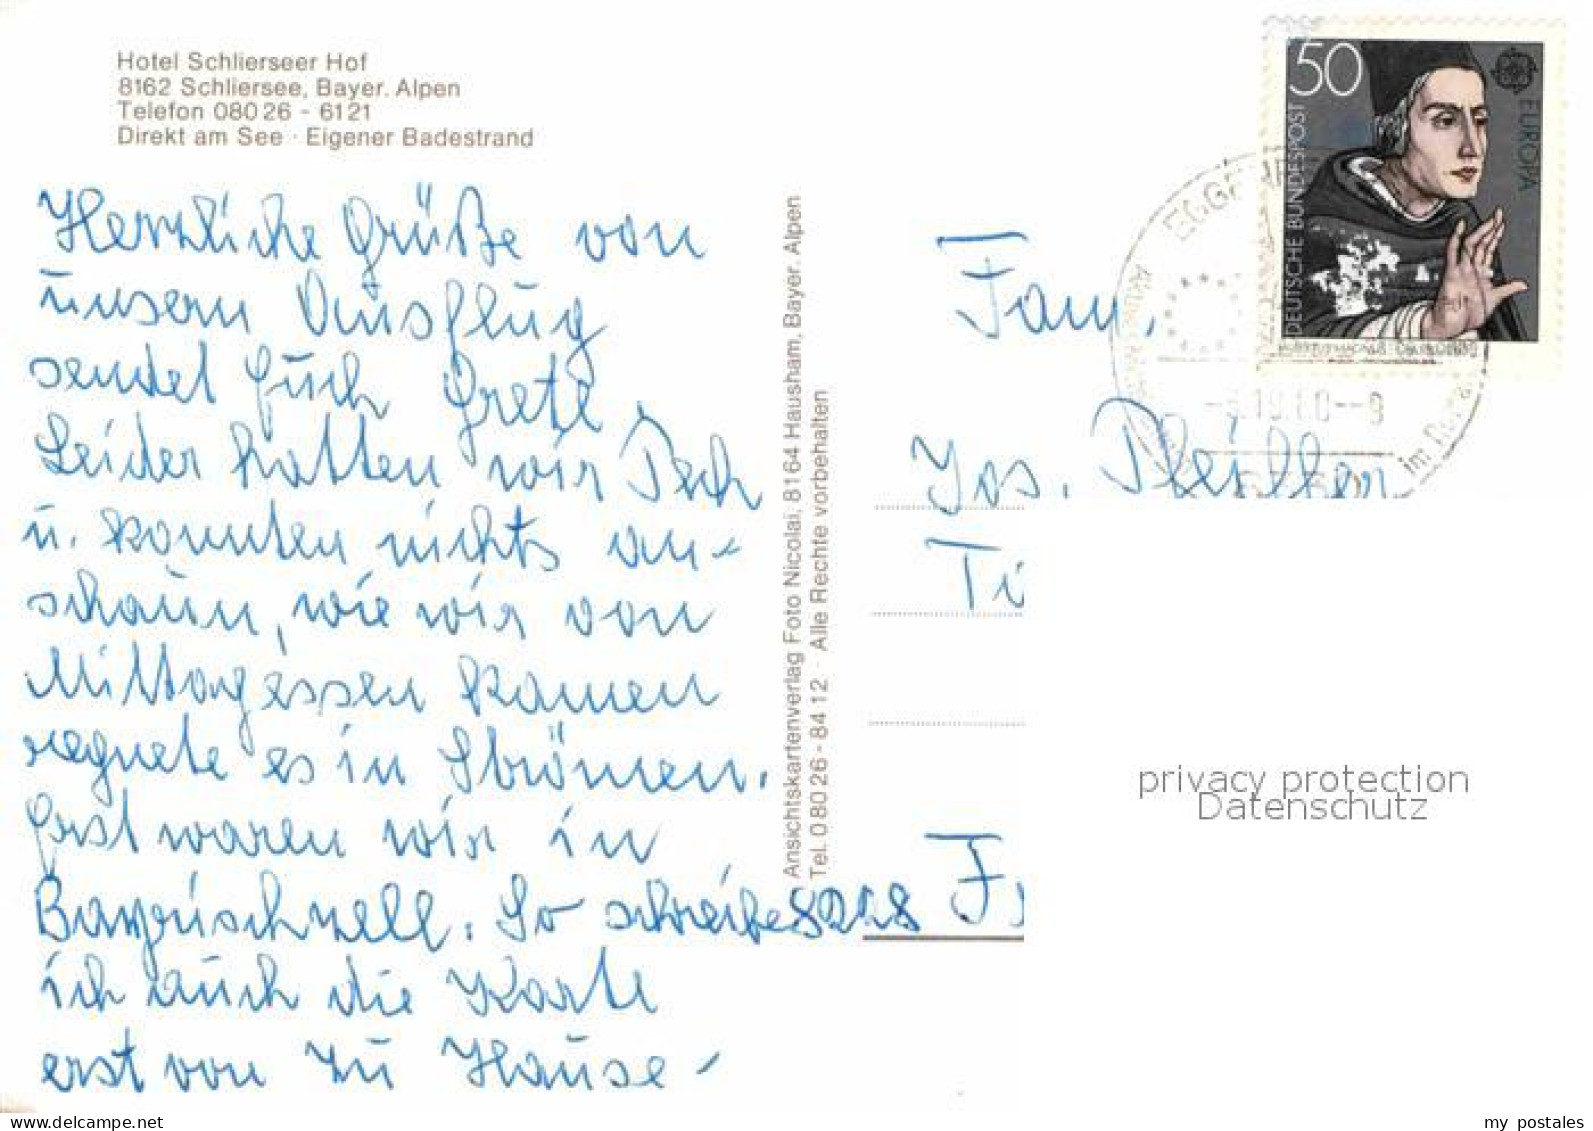 Hotel Schlierseer Hof
8162 Schliersee, Bayer. Alpen
Telefon 080 26 - 6121
Direkt am See · Eigener Badestrand
Herzliche Grüße von
unsern Ausflug
sendet Euch Grete.
Leider hatten wir Pech
u. konnten nichts an-
schaun, wie wir von
Mittagessen kamen
regnete es in Strömen.
Erst waren wir in
Bayrischzell. So schreibe
ich auch die Karte
erst von zu Hause -
Ansichtskartenverlag Foto Nicolai, 8164 Hausham, Bayer. Alpen
Tel. 0 80 26 - 84 12 · Alle Rechte vorbehalten
50
EUROPA
DEUTSCHE BUNDESPOST
EGGE
im
Fam.
Jos.
Ti
8228 F
privacy protection
Datenschutz
my postales